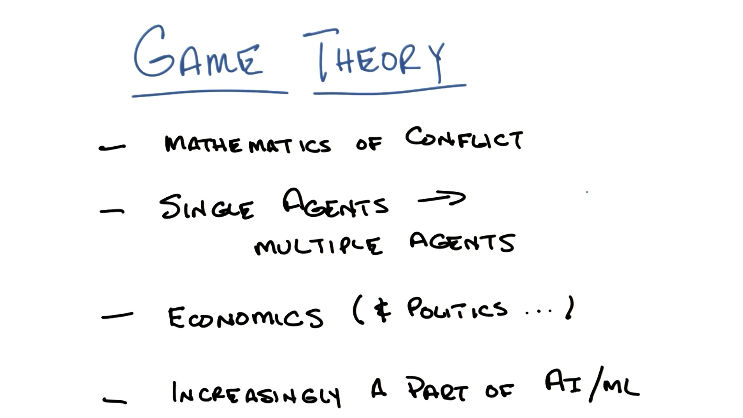 GAME THEORY
- MATHEMATICS OF CONFLICT
- SINGLE AGENTS →
MULTIPLE AGENTS
- ECONOMICS (& POLITICS ...)
- INCREASINGLY A PART OF AI/ML